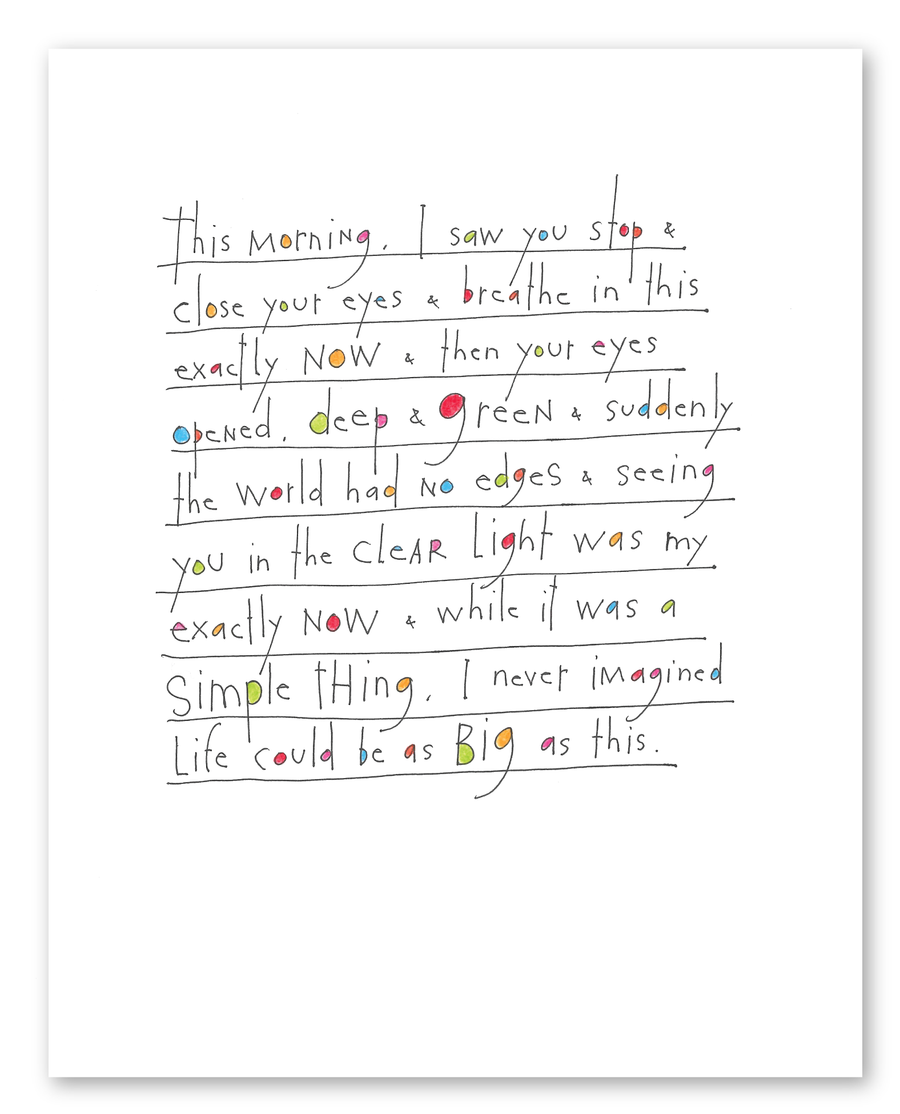 this morning, I saw you stop &
close your eyes & breathe in this
exactly NOW & then your eyes
opened, deep & green & suddenly
the world had NO edges & seeing
you in the CLeAR Light was my
exactly NOW & while it was a
Simple tHing, I never imagined
Life could be as Big as this.